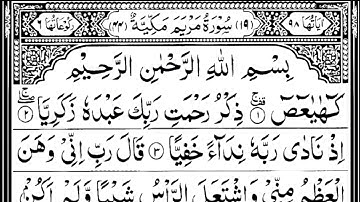 اٰیَاتُهَا ٩٨ (١٩) سُوْرَةُ مَرْیَمَ مَكِّیَّةٌ (٤٤) رُكُوْعَاتُهَا ٦
بِسْمِ اللّٰهِ الرَّحْمٰنِ الرَّحِیْمِ
كٓهٰیٰعٓصٓ ۚ ١ ذِكْرُ رَحْمَتِ رَبِّكَ عَبْدَهٗ زَكَرِیَّا ۚ ٢
اِذْ نَادٰی رَبَّهٗ نِدَآءً خَفِیًّا ٣ قَالَ رَبِّ اِنِّیْ وَهَنَ
الْعَظْمُ مِنِّیْ وَاشْتَعَلَ الرَّاْسُ شَیْبًا وَّلَمْ اَكُنْۢ